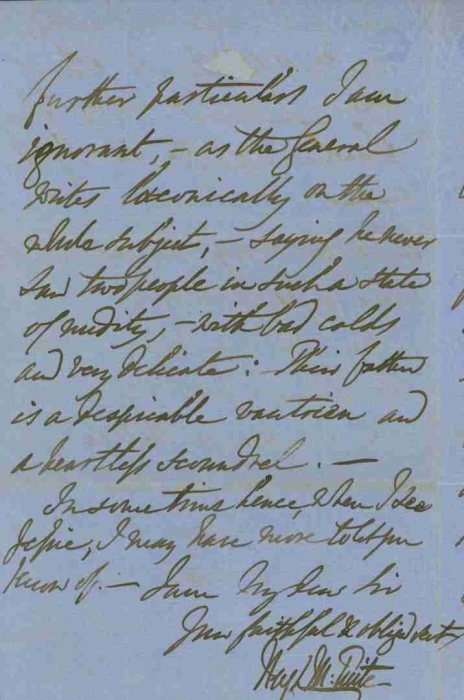 further particulars I am
ignorant, – as the General
writes laconically on the
whole subject, – saying he never
saw two people in such a state
of nudity, – with bad colds
and very delicate: – Their father
is a despicable vaurien and
a heartless scoundrel. —
In some time hence, when I see
I may have more to let you
know of. – I am My dear Sir
Your faithful & obliged
Hugh M. Tuite